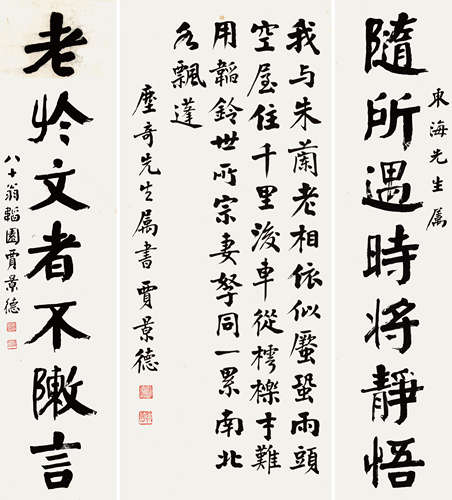 隨所遇時將靜悟
東海先生属
我与朱蘭老相依似蟨蛩兩頭
空屋住千里後車從樗櫟才難
用韜鈐世所宗妻孥同一累南北
各飄蓬
塵奇先生属書 賈景德
老於文者不敶言
八十翁韜園賈景德